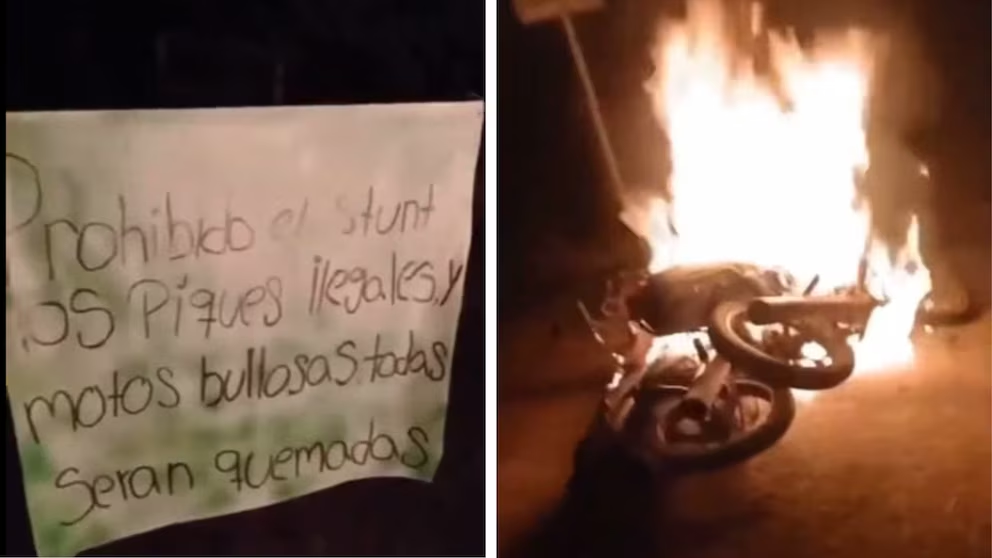 Prohibido el stunt
los Piques ilegales, y
motos bullosas. todas
Seran quemadas